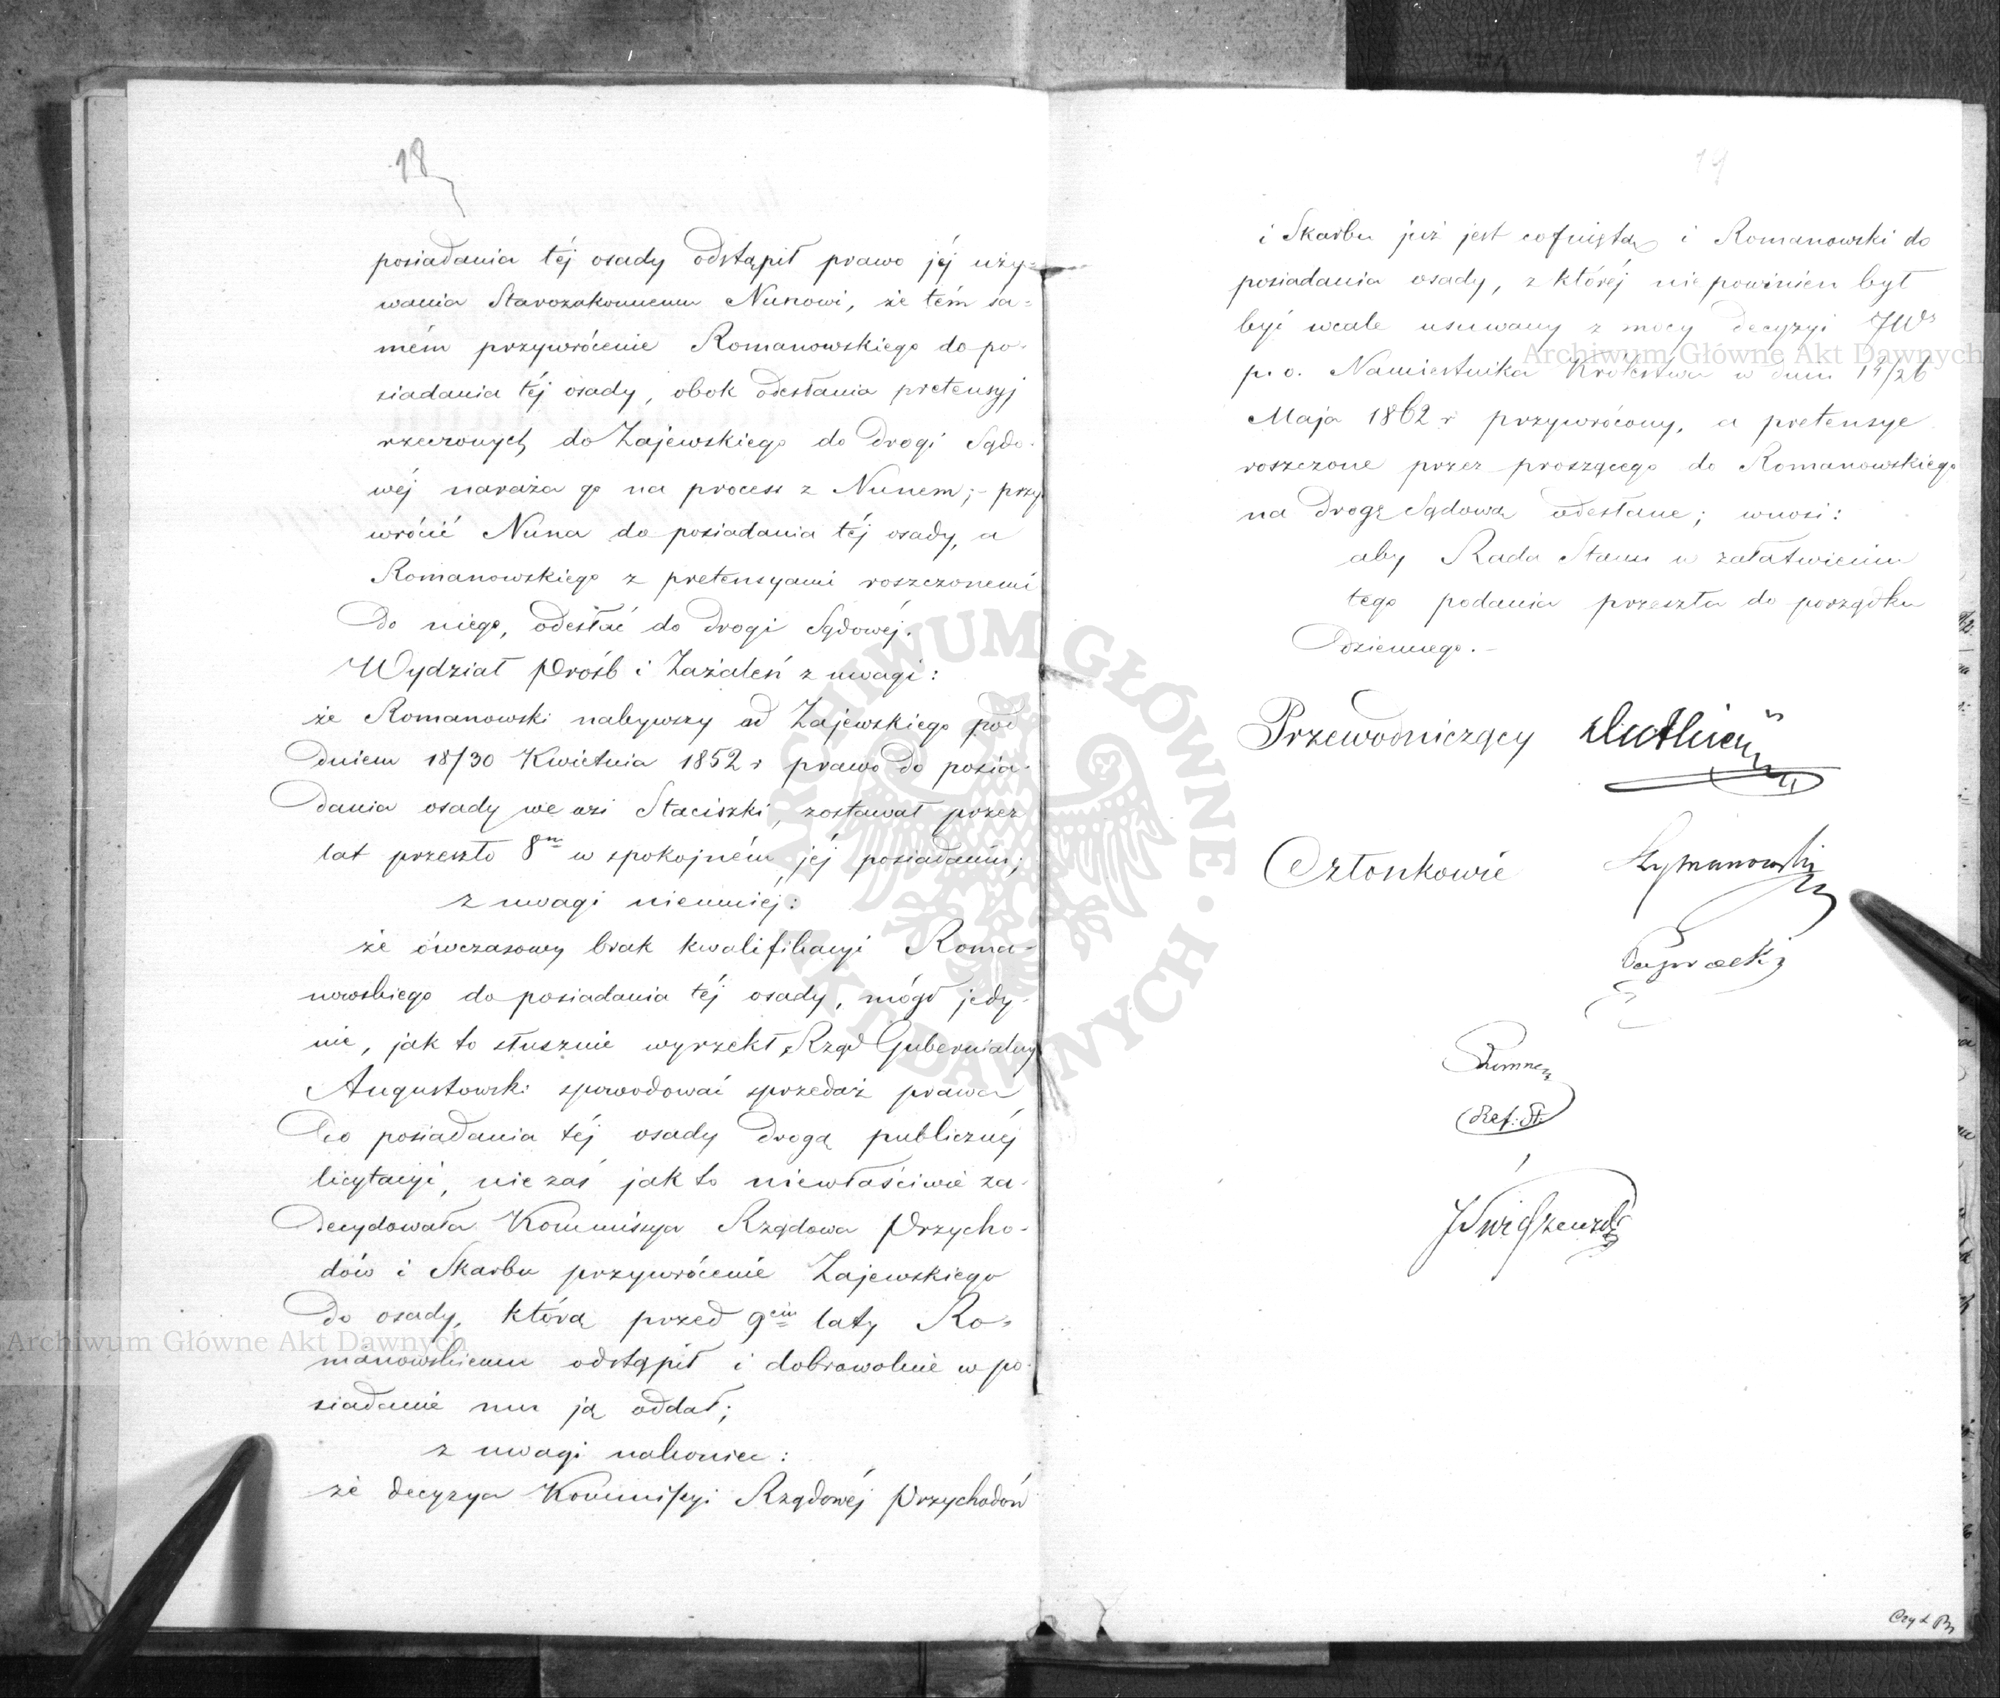 18
posiadania téj osady odstąpił prawo jéj uży-
wania Starozakonnemu Nunowi, że tém sa-
mém przywrócenie Romanowskiego do po-
siadania téj osady, obok odesłania pretensyj
rzeczonych do Zajewskiego do drogi Sądo-
wéj naraża go na process z Nunem; - przy
wrócić Nuna do posiadania téj osady, a
Romanowskiego z pretensyami roszczonemi
do niego, odesłać do drogi Sądowéj.
Wydział Próśb i Zażaleń z uwagi:
że Romanowski nabywszy od Zajewskiego pod
dniem 18/30 Kwietnia 1852 r prawo do posia-
dania osady we wsi Staciszki, zostawał przez
lat przeszło 8m w spokojném jéj posiadaniu;
z uwagi niemniéj:
że ówczasowy brak kwalifikacyi Roma-
nowskiego do posiadania téj osady, mógł jedy-
nie, jak to słusznie wyrzekł Rząd Gubernialny
Augustowski spowodować sprzedaż prawa
do posiadania téj osady drogą publicznéj
licytacyi, nie zaś jak to niewłaściwie za-
decydowała Kommissya Rządowa Przycho-
dów i Skarbu przywrócenie Zajewskiego
do osady, którą przed 9ciu laty Ro-
manowskiemu odstąpił i dobrowolnie w po-
siadanie mu ją oddał;
z uwagi nakoniec:
że decyzya Kommissyi Rządowéj Przychodów
19
i Skarbu już jest cofniętą i Romanowski do
posiadania osady, z któréj nie powinien był
być wcale usuwany z mocy decyzyi JW
p. o. Namiestnika Królestwa w dniu 14/26
Maja 1862 r przywrócony, a pretensye
roszczone przez proszącego do Romanowskiego
na drogę Sądową odesłane; wnosi:
aby Rada Stanu w załatwieniu
tego podania przeszła do porządku
dziennego. -
Przewodniczący
Członkowie Szymanowski
Paprocki
Ref: St:
J Święszewski
Archiwum Główne Akt Dawnych
Archiwum Główne Akt Dawnych
ARCHIWUM GŁÓWNE AKT DAWNYCH